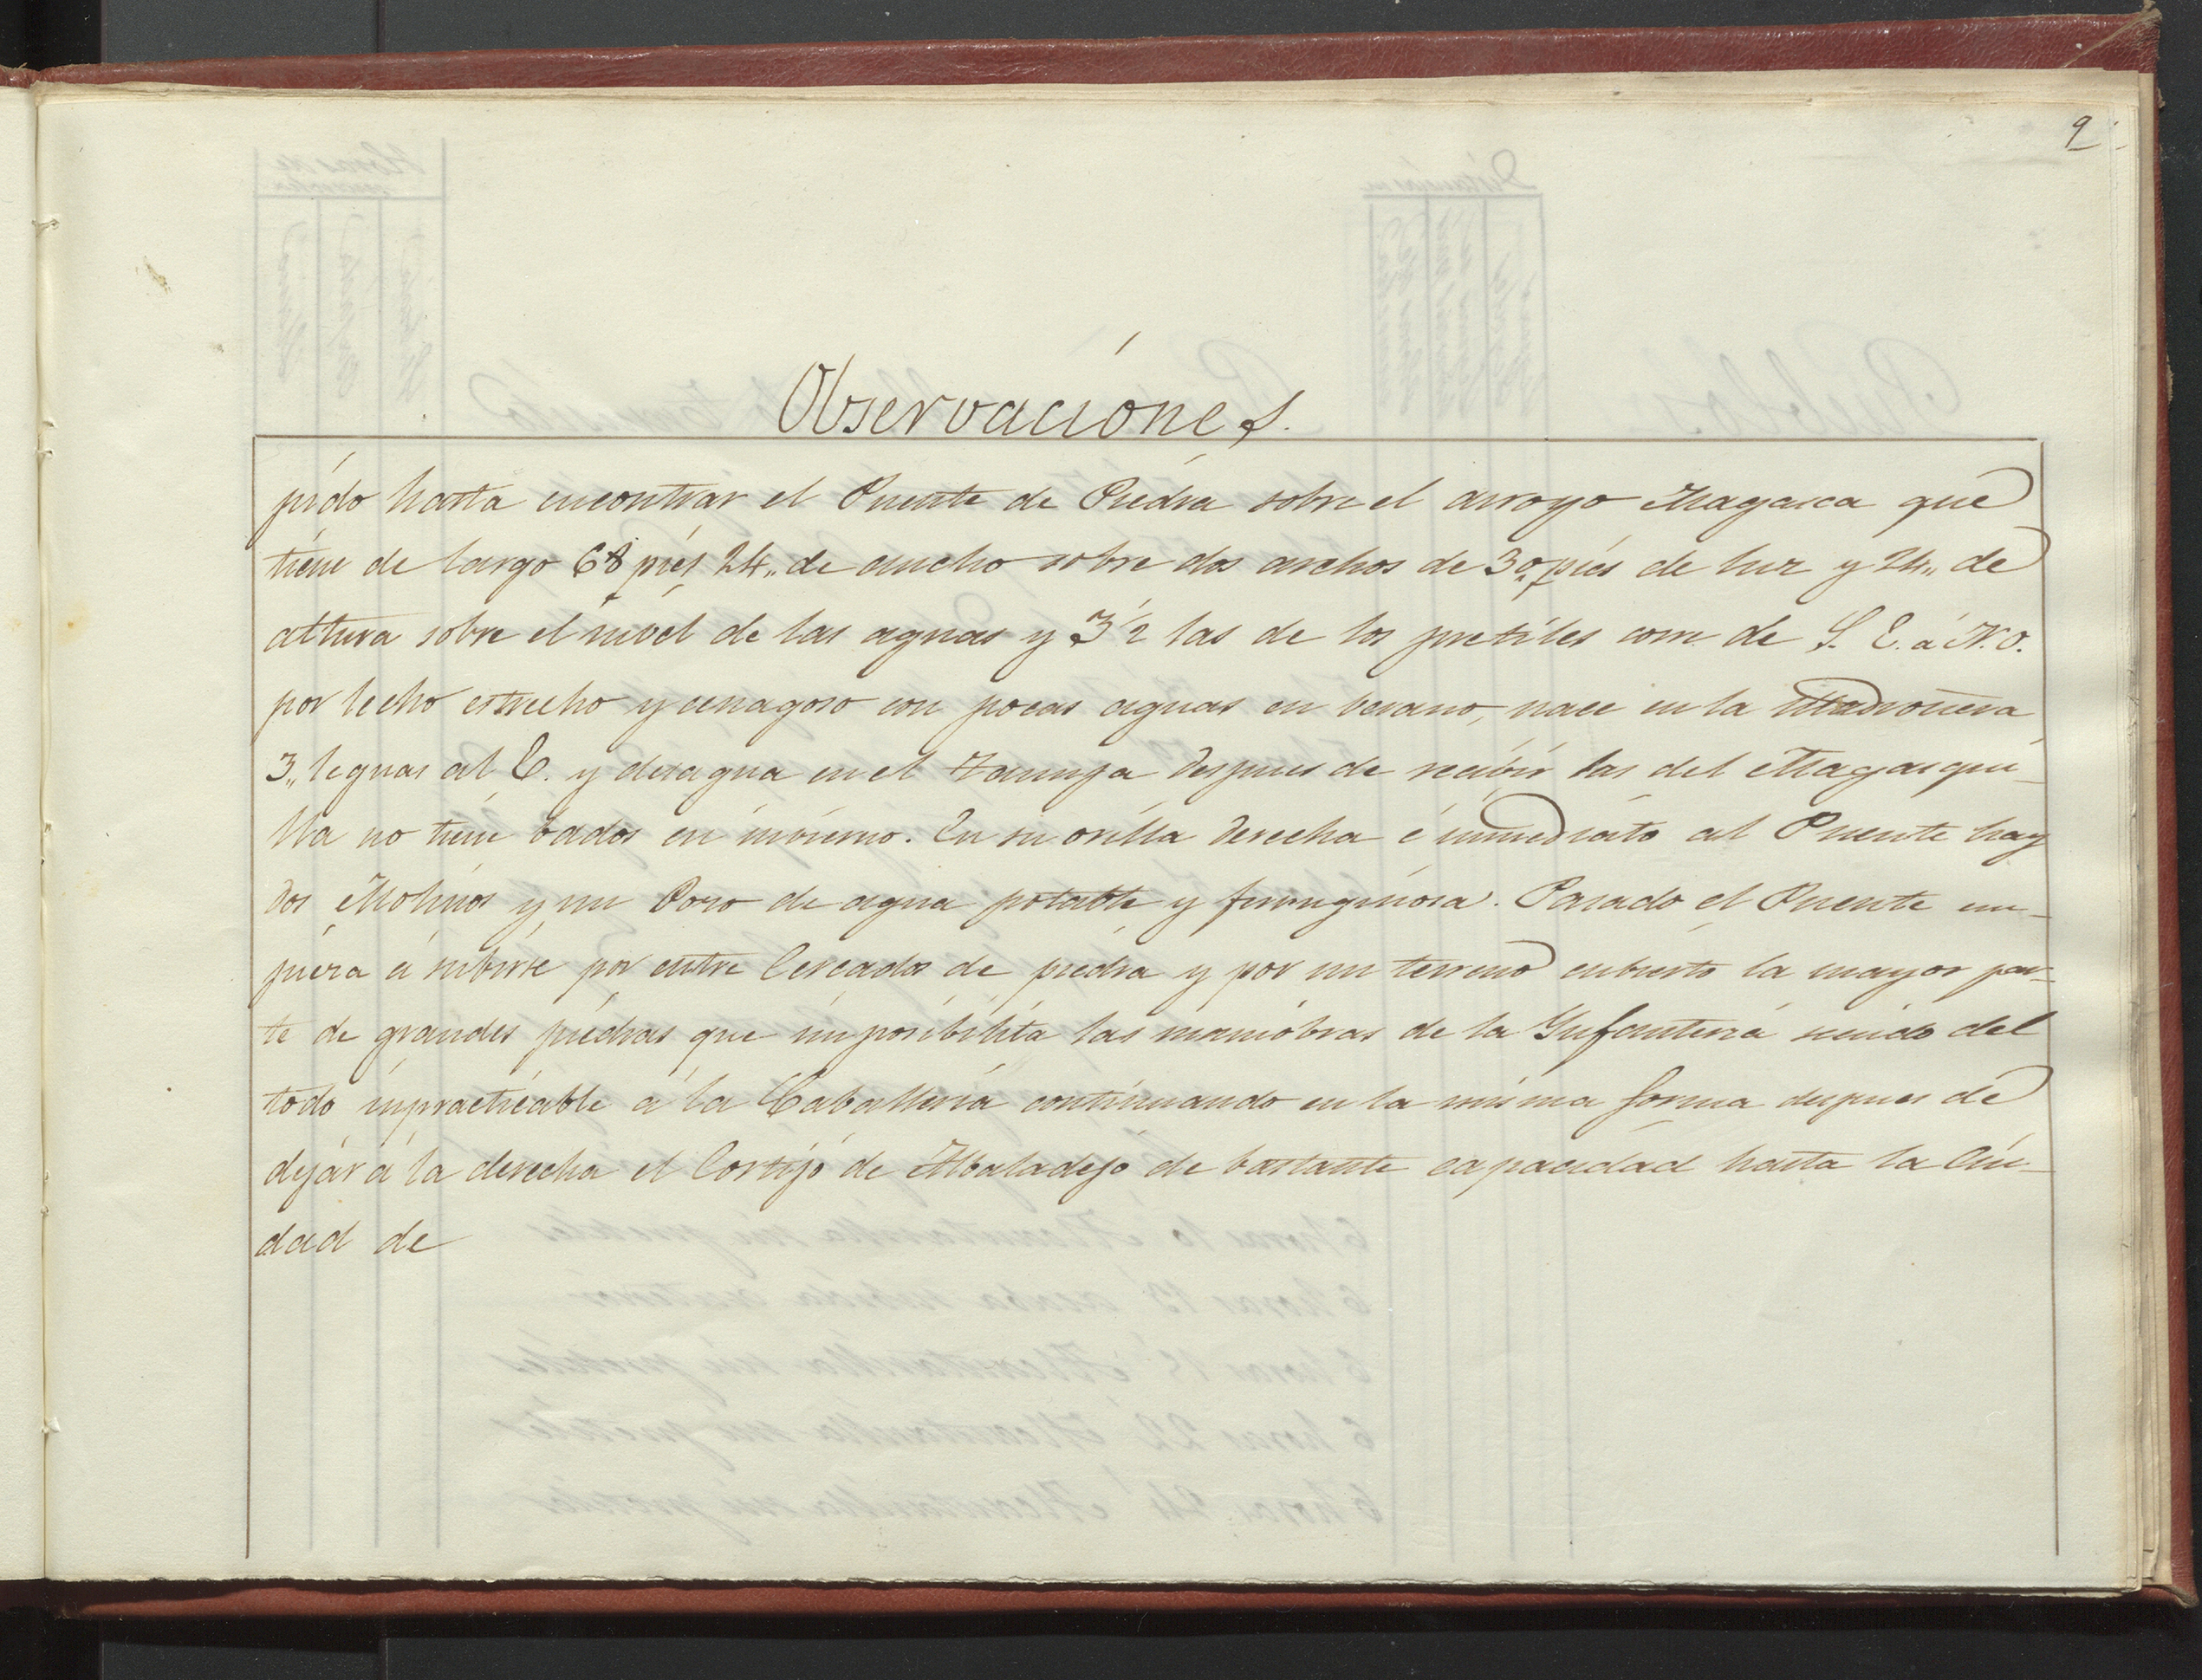 9
Observaciónes.
pido hasta encontrar el Puente de Piedra sobre el arroyo Magasca que
tiene de largo 68 piés 24,, de ancho sobre dos archos de 30,, piés de luz y 24,, de
altura sobre el nivel de las aguas y 3½ las de los pretiles corre de S. E. á N. O.
por lecho estrecho y cenagoso con pocas aguas en berano, nace en la Madroñera
3,, leguas al E. y desagua en el Tamuja despues de recibir las del Magasqui-
lla no tiene bados en invierno. En su orilla derecha é inmediato al Puente hay
dos Molinos y un Pozo de agua potable y ferruginosa. Pasado el Puente em-
pieza á subirse por entre Cercados de piedra y por un terreno cubierto la mayor par-
te de grandes piedras que imposibilita las maniobras de la Infanteria siendo del
todo impracticable á la Caballeria continuando en la misma forma despues de
dejar á la derecha el Cortijo de Albaladejo de bastante capacidad hasta la Ciu-
dad de